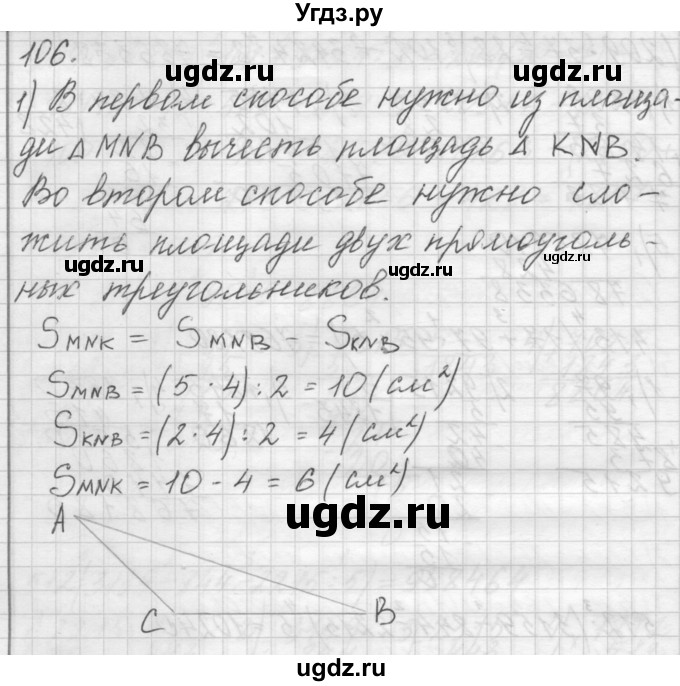 Угдз.ру
106.
ugdz.ru ugdz.ru
1) В первом способе нужно из площа-
ди △ MNB вычесть площадь △ KNB.
Во втором способе нужно сло-
жить площади двух прямоуголь-
ugdz.ru ugdz.ru
ных треугольников.
SMNK = SMNB - SKNB
SMNB = (5 · 4) : 2 = 10 (см²)
SKNB = (2 · 4) : 2 = 4 (см²)
SMNK = 10 - 4 = 6 (см²)
ugdz.ru
A
C B
ugdz.ru